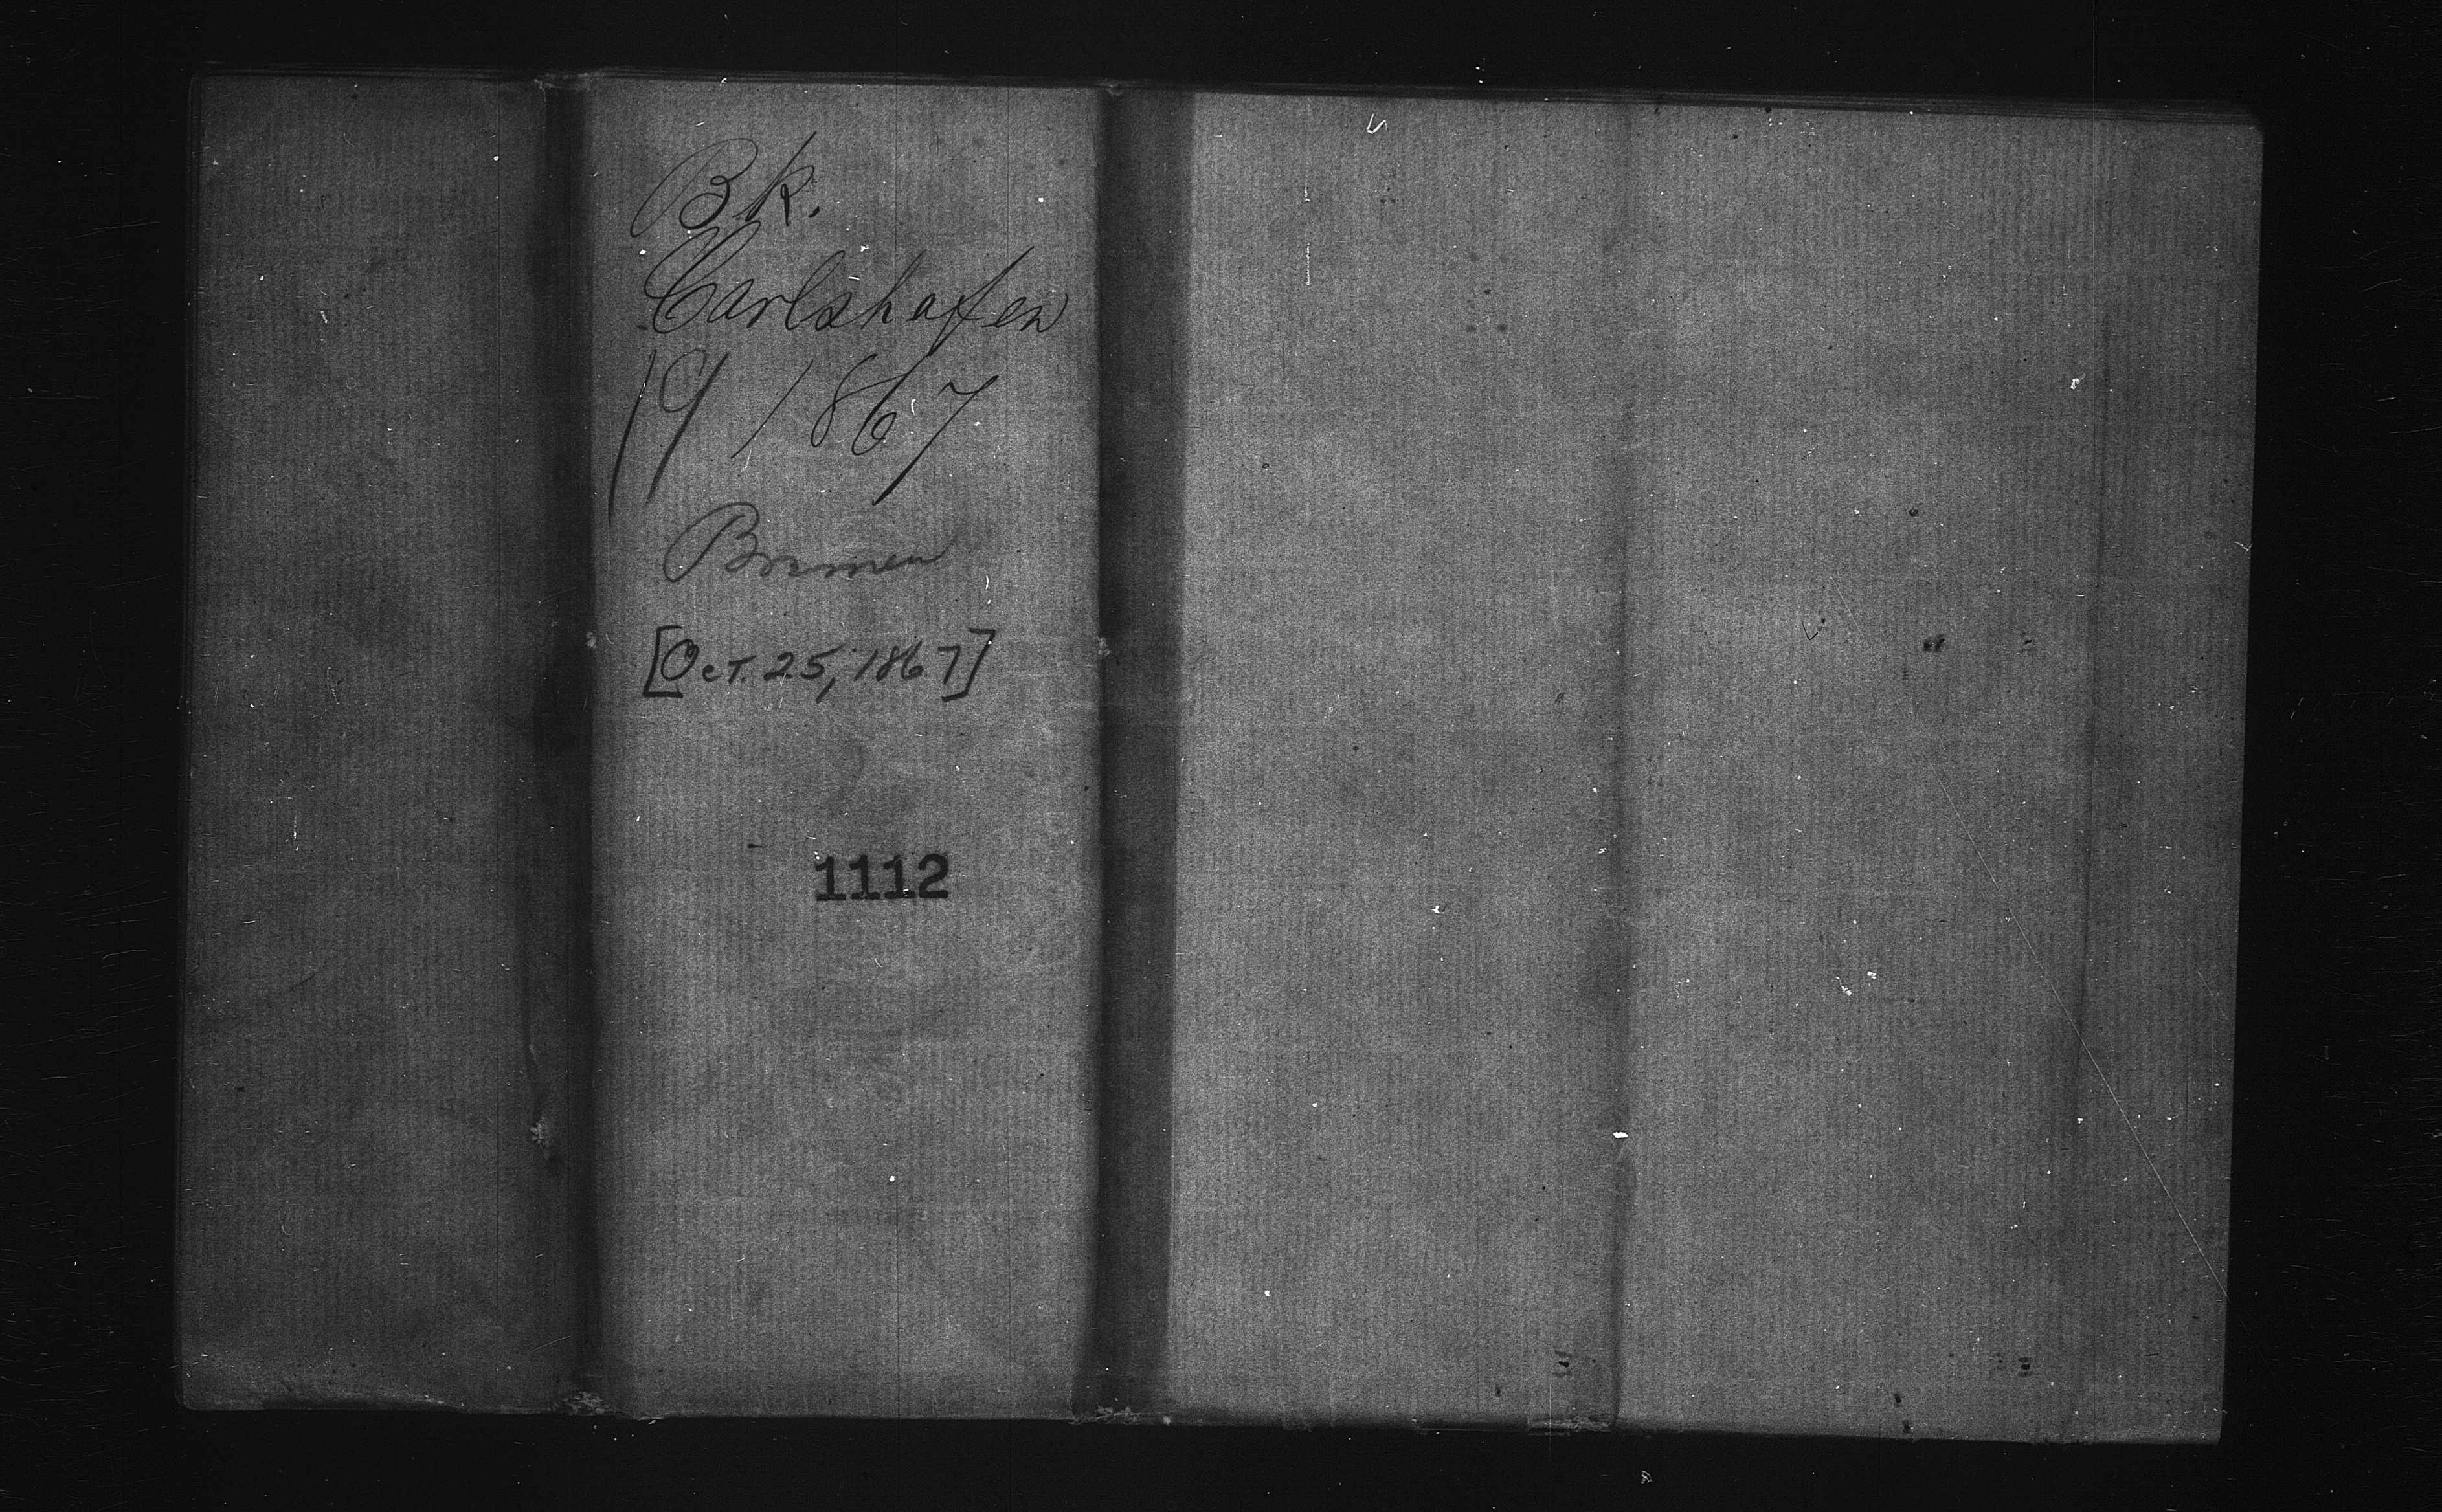 Bk.
Carlshafen
19 1867
Bremen
[Oct. 25, 1867]
1112